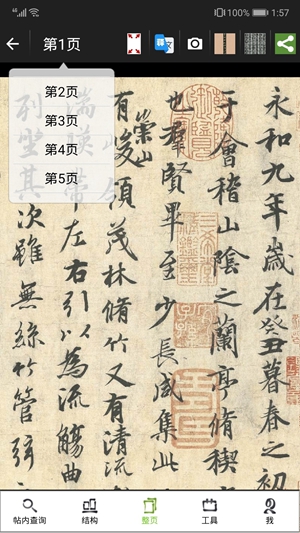 100%
1:57
第1页
第2页
第3页
第4页
第5页
永和九年歲在癸丑暮春之初
于會稽山陰之蘭亭脩稧
也羣賢畢至少長咸集此
有崇山
峻領茂林脩竹又有清流
湍暎帶左右引以為流觴曲
列坐其次雖無絲竹管弦
帖内查询
结构
整页
工具
我